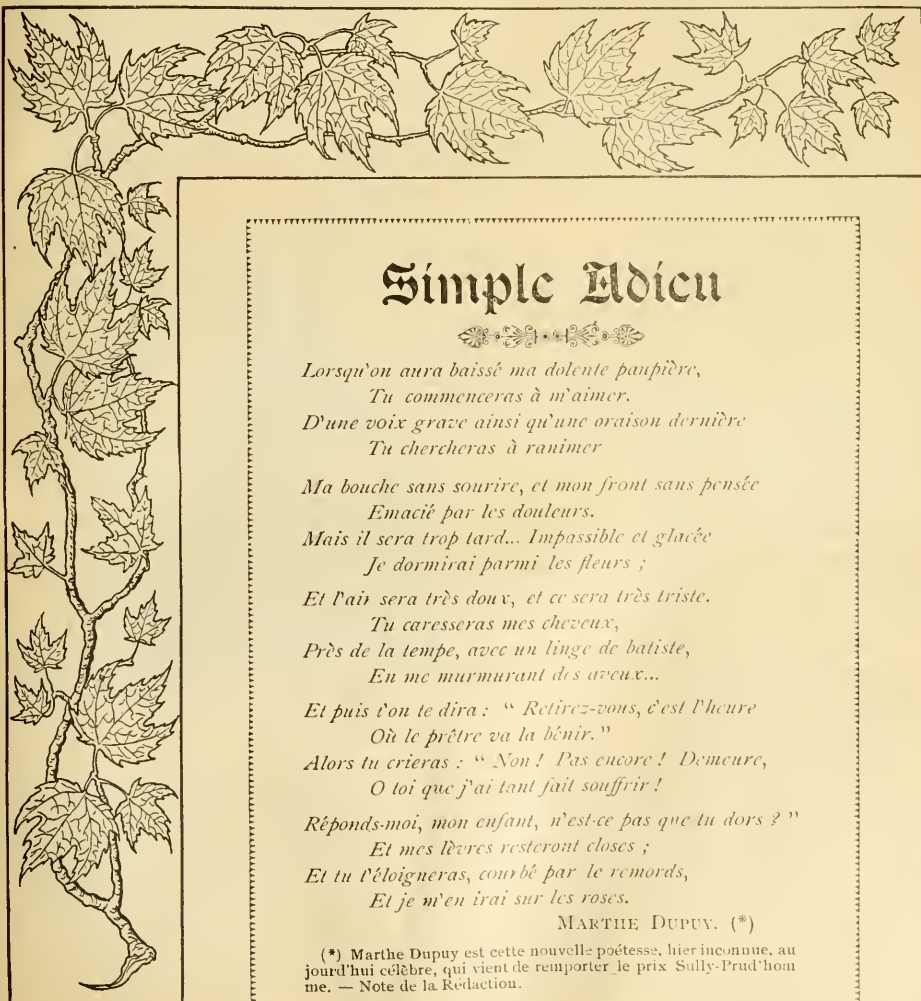 Simple Adieu
Lorsqu'on aura baissé ma dolente paupière,
Tu commenceras à m'aimer.
D'une voix grave ainsi qu'une oraison dernière
Tu chercheras à ranimer
Ma bouche sans sourire, et mon front sans pensée
Emacié par les douleurs.
Mais il sera trop tard... Impassible et glacée
Je dormirai parmi les fleurs ;
Et l'air sera très doux, et ce sera très triste.
Tu caresseras mes cheveux,
Près de la tempe, avec un linge de batiste,
En me murmurant des aveux...
Et puis l'on te dira : “ Retirez-vous, c'est l'heure
Où le prêtre va la bénir.”
Alors tu crieras : “ Non ! Pas encore ! Demeure,
O toi que j'ai tant fait souffrir !
Réponds-moi, mon enfant, n'est-ce pas que tu dors ? ”
Et mes lèvres resteront closes ;
Et tu t'éloigneras, courbé par le remords,
Et je m'en irai sur les roses.
MARTHE DUPUY. (*)
(*) Marthe Dupuy est cette nouvelle poétesse, hier inconnue, au
jourd'hui célèbre, qui vient de remporter le prix Sully-Prud'hom
me. — Note de la Rédaction.